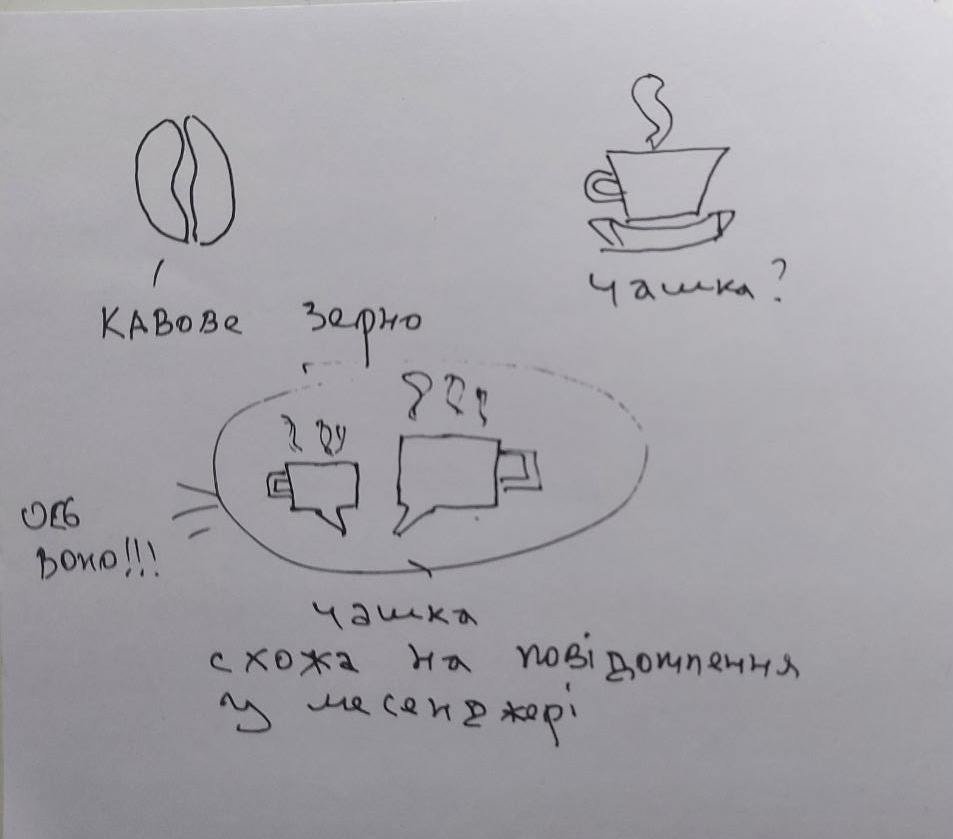 кавове зерно
чашка?
ось
воно!!!
чашка
схожа на повідомлення
у месенджері